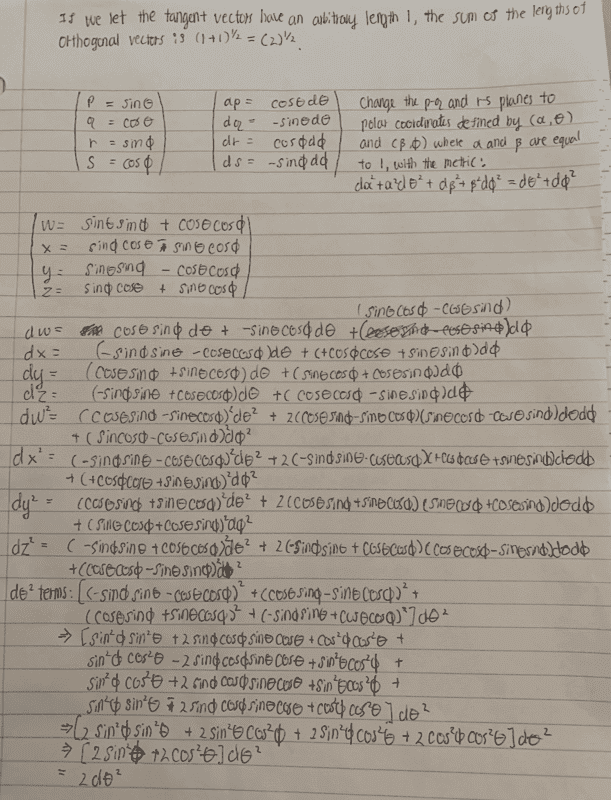 If we let the tangent vectors have an arbitrary length 1, the sum of the lengths of
orthogonal vectors is (1+1)^½ = (2)^½.
p = sinθ
q = cosθ
r = sinφ
s = cosφ
dp = cosθdθ
dq = -sinθdθ
dr = cosφdφ
ds = -sinφdφ
Change the p-q and r-s planes to
polar coordinates defined by (α,θ)
and (β,φ) where α and β are equal
to 1, with the metric:
dα²+α²dθ² + dβ²+β²dφ² = dθ²+dφ²
w = sinθsinφ + cosθcosφ
x = sinφcosθ - sinθcosφ
y = sinθsinφ - cosθcosφ
z = sinφcosθ + sinθcosφ
(sinθcosφ-cosθsinφ)
dw = cosθsinφdθ + -sinθcosφdθ +(cosθsinφ-cosθsinφ)dφ
dx = (-sinφsinθ -cosθcosφ)dθ + (+cosφcosθ +sinθsinφ)dφ
dy = (cosθsinφ +sinθcosφ)dθ +(sinθcosφ+cosθsinφ)dφ
dz = (-sinφsinθ +cosθcosφ)dθ +(cosθcosφ -sinθsinφ)dφ
dw² = (cosθsinφ -sinθcosφ)²dθ² + 2(cosθsinφ-sinθcosφ)(sinθcosφ-cosθsinφ)dθdφ
+ (sinθcosφ-cosθsinφ)²dφ²
dx² = (-sinφsinθ -cosθcosφ)²dθ² +2(-sinφsinθ-cosθcosφ)(+cosφcosθ+sinθsinφ)dθdφ
+ (+cosφcosθ+sinθsinφ)²dφ²
dy² = (cosθsinφ +sinθcosφ)²dθ² + 2(cosθsinφ+sinθcosφ)(sinθcosφ+cosθsinφ)dθdφ
+ (sinθcosφ+cosθsinφ)²dφ²
dz² = (-sinφsinθ +cosθcosφ)²dθ² + 2(-sinφsinθ + cosθcosφ)(cosθcosφ-sinθsinφ)dθdφ
+(cosθcosφ-sinθsinφ)²dφ²
dθ² terms: [(-sinφsinθ -cosθcosφ)² +(cosθsinφ-sinθcosφ)² +
(cosθsinφ +sinθcosφ)² +(-sinφsinθ+cosθcosφ)²]dθ²
⇒ [sin²φsin²θ +2sinφcosφsinθcosθ +cos²φcos²θ +
sin²φcos²θ -2sinφcosφsinθcosθ +sin²θcos²φ +
sin²φcos²θ +2sinφcosφsinθcosθ +sin²θcos²φ +
sin²φsin²θ - 2sinφcosφsinθcosθ +cos²φcos²θ]dθ²
⇒[2sin²φsin²θ + 2sin²θcos²φ + 2sin²φcos²θ + 2cos²φcos²θ]dθ²
⇒ [2sin²θ +2cos²θ]dθ²
= 2dθ²